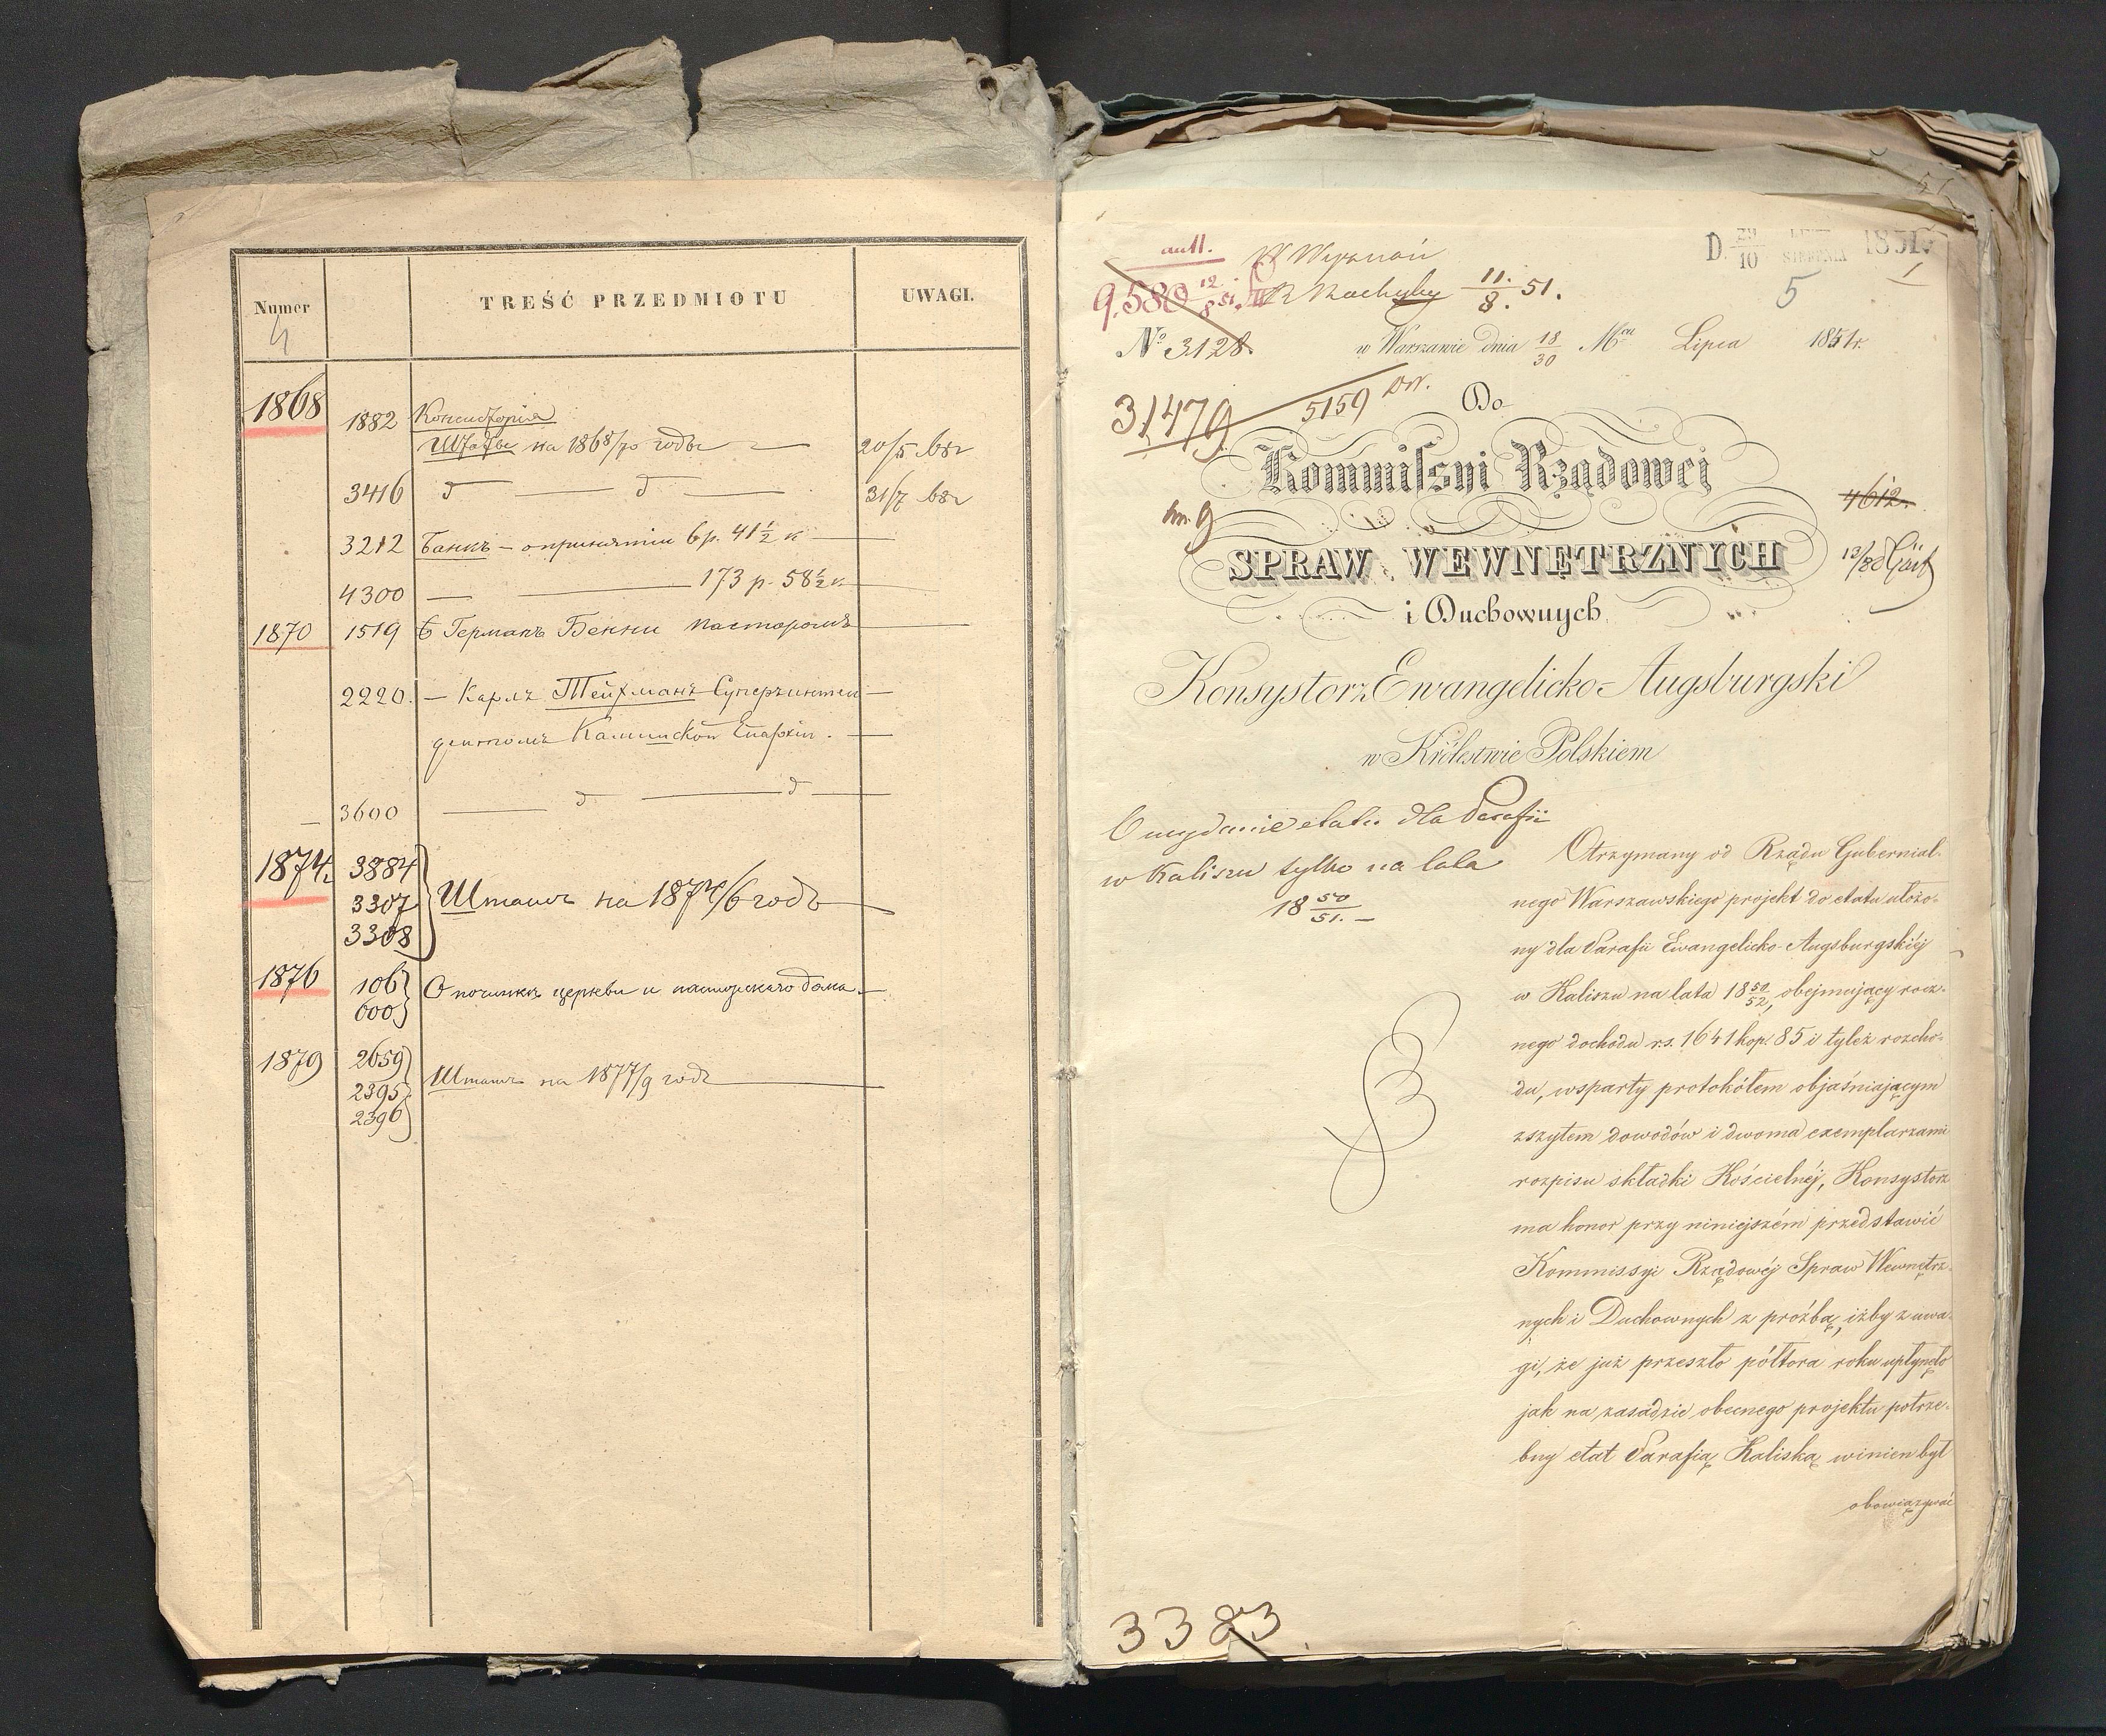 Numer
TREŚĆ PRZEDMIOTU
UWAGI.
4
1868
1882 Консисторія
Штаты на 1868/70 годы 20/5 68 г
3416 д д 31/7 68 г
3212 Банкъ – о принятии 6 р. 41 ½ к
4300 173 р. 58 ½ к
1870 1519 О Германъ Бенни пасторомъ
2220. – Карлъ Тейхманъ Суперъинтен
дентомъ Калишской Епархіи.
3600 д д
1874 3884
3307 Штатъ на 1874/6 годъ
3308
1876 106 О починкѣ церкви и пасторскаго дома
600
1879 2659
2395 Штатъ на 1877/9 годъ
2396
W Wyznań
9,580 12/8 51. III
11./8. 51.
D. 29/10 SIERPNIA 1851.
5
1
No 3128.
w Warszawie dnia 18/30 Mca Lipca 1851 r.
31479
5159
Do
Kommissyi Rządowej
4612.
SPRAW WEWNĘTRZNYCH
13/8
i Duchownych
Konsystorz Ewangelicko-Augsburgski
w Królestwie Polskiem
O wydanie etatu dla Parafii
w Kaliszu tylko na lata
18 50/51. –
Otrzymany od Rządu Gubernial-
nego Warszawskiego projekt do etatu ułożo-
ny dla Parafii Ewangelicko-Augsburgskiéj
w Kaliszu na lata 18 50/52, obejmujący rocz-
nego dochodu rs. 1641 kop. 85 i tyleż rozcho-
du, wsparty protokółem objaśniającym
zszytem dowodów i dwoma exemplarzami
rozpisu składki Kościelnéj, Konsystorz
ma honor przy niniejszém przedstawić
Kommissyi Rządowéj Spraw Wewnętrz-
nych i Duchownych z prożbą, iżby z uwa-
gi, że już przeszło półtora roku upłynęło
jak na zasadzie obecnego projektu potrze-
bny etat Parafią Kaliską winien był
obowiązywać
3383.